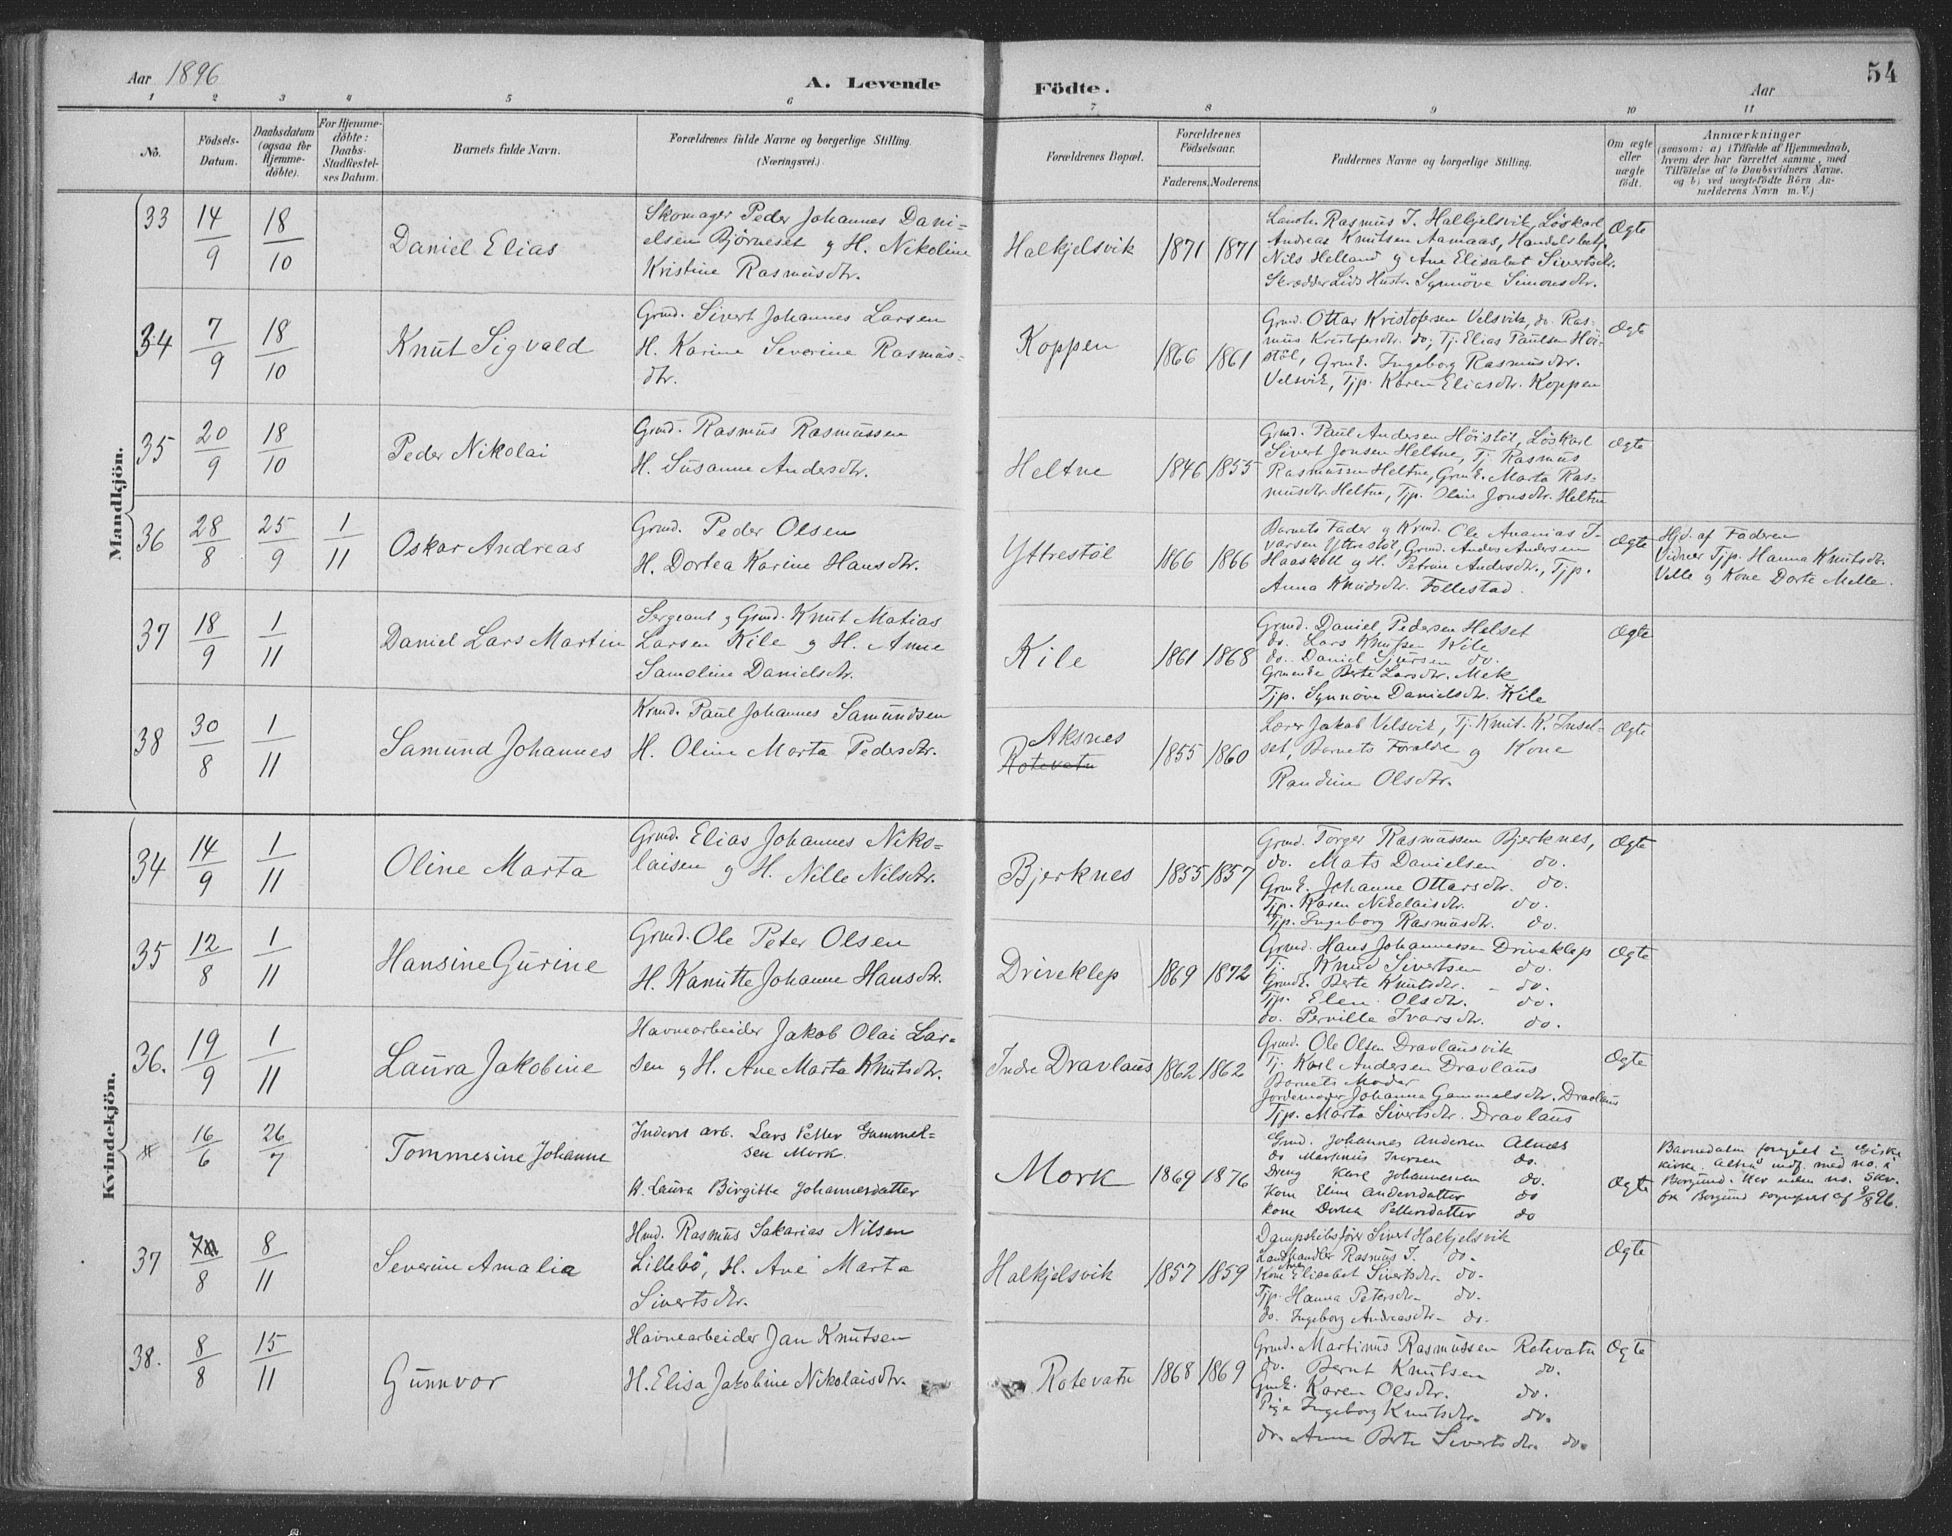 Aar 1896
A. Levende
Födte.
Aar
54
1 2 3 4 5 6 7 8 9 10 11
No.
Födsels-
Datum.
Daabsdatum
(ogsaa for
Hjemme-
döbte).
For Hjemme-
döbte:
Daabs-
Stadfæstel-
ses Datum.
Barnets fulde Navn.
Forældrenes fulde Navne og borgerlige Stilling.
(Næringsvei.)
Forældrenes Bopæl.
Forældrenes
Födselsaar.
Faderens. Moderens.
Faddernes Navne og borgerlige Stilling.
Om ægte
eller
uægte
födt.
Anmærkninger
(saasom: a) i Tilfælde af Hjemmedaab,
hvem der har forrettet samme, med
Tilföielse af to Daabsvidners Navne.
og b) ved uægtefödte Börn An-
melderens Navn m. V.)
Mandkjön.
33
14/9
18/10
Daniel Elias
Skomager Peder Johannes Dani-
elsen Bjørneset g H. Nikoline
Kristine Rasmusdtr.
Halkjelsvik
1871
1871
Landh. Rasmus I. Halkjelsvik, Løskarl
Andreas Knutsen Aamaas, Handelsbetj.
Nils Helland g Ane Elisabet Sivertsdtr.
Skrædder Lids Hustr. Synnøve Simonsdtr.
Ægte
34
7/9
18/10
Knut Sigvald
Grmd. Sivert Johannes Larsen
H. Karine Severine Rasmus-
dtr.
Koppen
1866
1861
Grmd. Ottar Kristofersen Velsvik, do. Ras-
mus Kristofersdtr. do; Tj. Elias Paulsen Høi-
støl, GrmE. Ingeborg Rasmusdtr.
Velsvik, Tjp. Karen Eliasdtr. Koppen
Ægte
35
20/9
18/10
Peder Nikolai
Grmd. Rasmus Rasmussen
H. Susanne Andersdtr.
Heltne
1846
1855
Grmd. Paul Andersen Høistøl, Løskarl
Sivert Jonsen Heltne, Tj. Rasmus
Rasmussen Heltne, GrmE. Marta Ras-
musdtr. Heltne, Tjp. Oline Jonsdtr. Heltne
Ægte
36
28/8
25/9
1/11
Oskar Andreas
Grmd. Peder Olsen
H. Dortea Karine Hansdtr.
Yttrestøl
1866
1866
Barnets Fader g Krmd. Ole Ananias I-
varsen Yttrestøl, Grmd. Anders Andersen
Haaskoll g H. Petrine Andersdtr., Tjp.
Anna Knudsdtr. Follestad.
Ægte
Hjd. af Faderen
Vidner Tjp. Hanna Knutsdtr.
Velle g Kone Dorte Melle.
37
18/9
1/11
Daniel Lars Martin
Sergeant g Grmd. Knut Matias
Larsen Kile g H. Anne
Samoline Danielsdtr.
Kile
1861
1868
Grmd. Daniel Pedersen Helset
do. Lars Knutsen Kile
do. Daniel Sjursen do.
Grmende Berte Larsdtr. Mek
Tjp. Synnøve Danielsdtr. Kile
Ægte
38
30/8
1/11
Samund Johannes
Krmd. Paul Johannes Samundsen
H. Oline Marta Pedersdtr.
Aksnes
Rotevatn
1855
1860
Lærer Jakob Velsvik, Tj. Knut K. Insel-
set, Barnets Foralde g Kone
Randine Olsdtr.
Ægte
Kvindekjön.
34
14/9
1/11
Oline Marta
Grmd. Elias Johannes Niko-
laisen g H. Nille Nilsdtr.
Bjerknes
1855
1857
Grmd. Torger Rasmussen Bjerknes,
do. Mats Danielsen do.
GrmE. Johanne Ottarsdtr. do.
Tjp. Karen Nikolaisdtr. do.
Tjp. Ingeborg Rasmusdtr. do.
Ægte
35
12/8
1/11
Hansine Gurine
Grmd. Ole Peter Olsen
H. Kanutte Johanne Hansdtr.
Driveklep
1869
1872
Grmd. Hans Johannessen Driveklep
Tj. Knud Sivertsen do.
GrmdE. Berte Knutsdtr. - do.
Tjp. Elen Olsdtr. do.
do. Pernille Ivarsdtr. do.
Ægte
36.
19/9
1/11
Laura Jakobine
Havnearbeider Jakob Olai Lar-
sen g H. Ane Marta Knutsdtr.
Indre Dravlaus
1862
1862
Grmd. Ole Olsen Dravlausvik
Tj. Karl Andersen Dravlaus
Barnets Moder
Jordemoder Johanna Gammelsdtr. Dravlaus
Tjp. Marta Sivertsdtr. Dravlaus
Ægte
16/6
26/7
Tommesine Johanne
Inderst arb. Lars Petter Gammel-
sen Mork.
H. Laura Birgitte Johannesdatter
Mork
1869
1876
Grmd. Johannes Andersen Alnæs
do Martinus Iversen do.
Dreng Karl Johannessen do.
Kone Eline Andersdatter do
Kone Dortea Pettersdatter do
Ægte
Barnedaaben foregået i Giske
kirke. Altså indf. med no. i
Borgund. Her uden no. Skr.
fra Borgund sogneprest af 8/8 96.
37
8
8/11
Severine Amalia
Hmd. Rasmus Sakarias Nilsen
Lillebö, H. Ane Marta
Sivertsdtr.
Halkjelsvik
1857
1859
Dampskibsfører Sivert Halkjelsvik
Landhandler Rasmus I. do.
Kone Ane Elisabet Sivertsdtr. do.
Tjp. Hanna Petersdtr. do.
do. Ingeborg Andreasdtr. do.
Ægte
38.
8/8
15/11
Gunnvor
Havnearbeider Jan Knutsen
H. Elisa Jakobine Nikolaisdtr.
Rotevatn
1868
1869
Grmd. Martinus Rasmussen Rotevatn
do. Bernt Knutsen do.
GmE. Karen Olsdtr. do.
Pige Ingeborg Knutsdtr. do.
do. Anne Berte Sivertsdtr. do.
Ægte